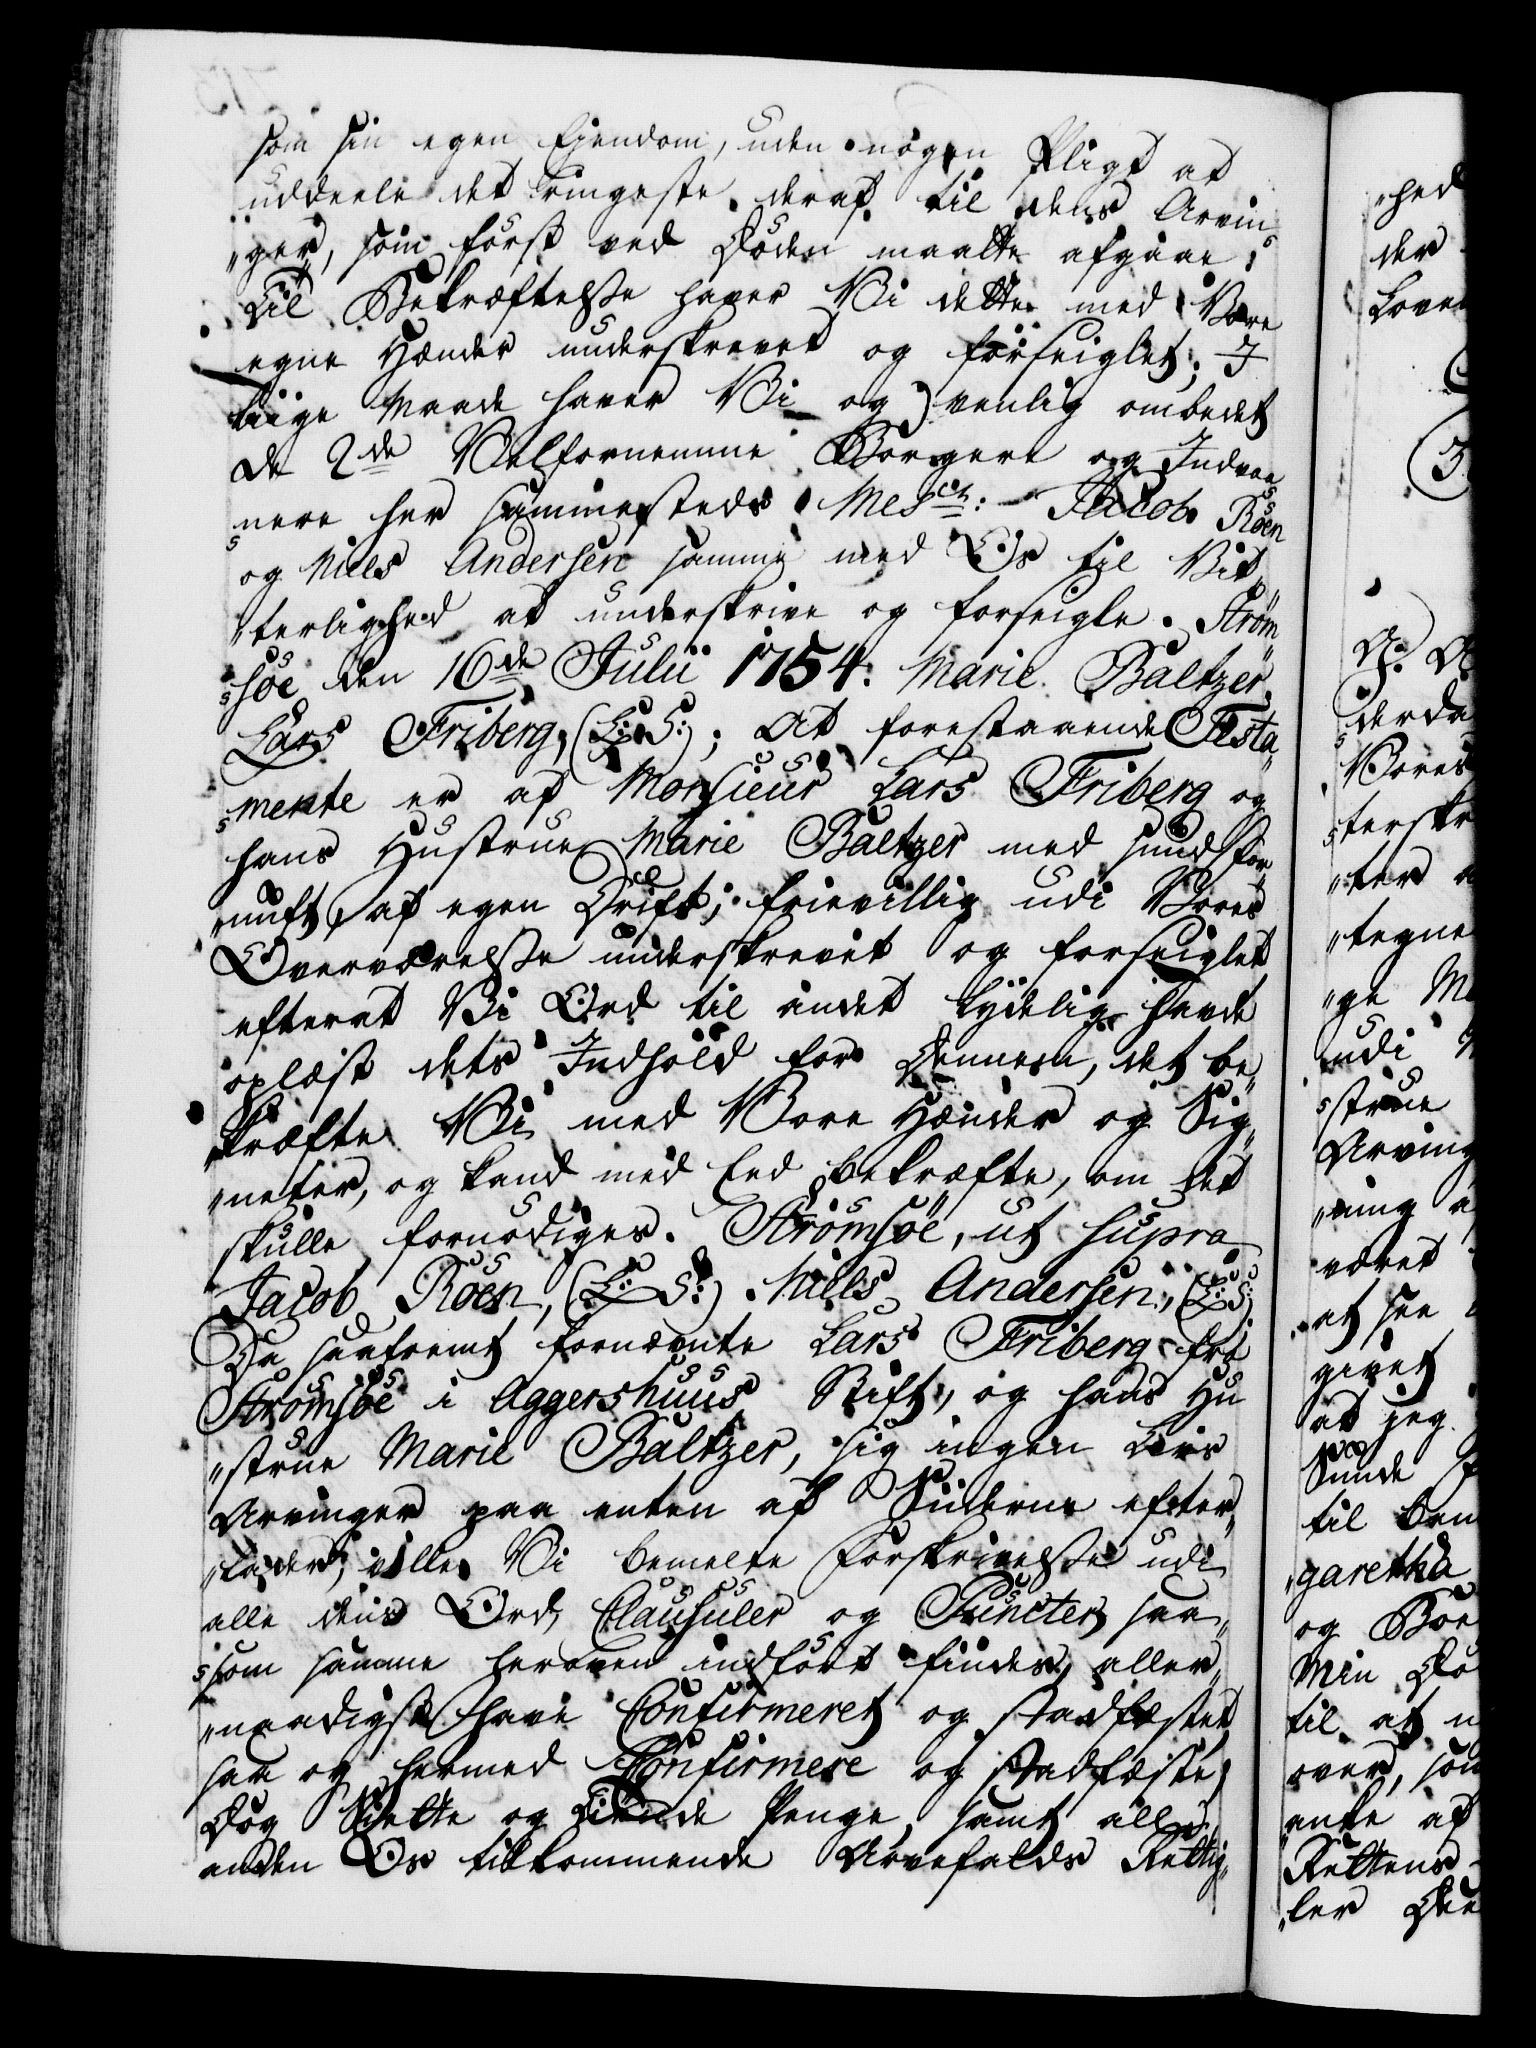 som sin egen Ejendom, uden nogen Pligt at
uddeele det ringeste deraf til dens Arvin„
„ger, som först ved Döden maatte afgaae;
Til Bekræftelsse haver Vi dette med Vore
egne Hænder underskrevet og forseiglet; I
liige Maade haver Vi og venlig ombedet
de 2de Velfornemme Borgere og Indvaa„
nere her sammesteds Mesrs: Jacob Röen
og Niels Andersen samme med Os til Vit„
„terlighed at underskrive og forseigle. Ström„
„söe den 16de Julii 1754. Marie Baltzer,
Lars Friberg, (L: S:); At forestaaende Testa„
„mente er af Monsieur Lars Friberg og
hans Hustrue Marie Baltzer med sund For„
„nuft, af egen Drift, frievillig udi Vores
Overværelsse underskrevet og forseiglet
efterat Vi Ord til andet lydelig havde
oplæst dets Indhold for Dennem, det be„
„kræfte Vi med Vore Hænder og Sig„
„neter, og kand med Eed bekræfte, om det
skulle fornödiges. Strömsöe, ut supra
Jacob Röen, (L: S:) Niels Andersen, (L: S:)
Da saafremt fornævnte Lars Friberg fra
Strömsöe i Aggershuus Stift, og hans Hu„
„strue Marie Baltzer, sig ingen Livs
Arvinger paa enten af Siderne efter„
„lader, ville Vi bemelte Forskrivelsse udi
alle deris Ord, Clausuler og Puncter saa„
„som samme heroven indfört findes, aller„
„naadigst have Confirmeret og stadfæstet
saa og hermed Confirmere og stadfæste;
Dog Siette og Tiende Penge, samt alle
anden Os tilkommende Arvefalds Rettig„
„hed
der
Love
3
derda
Vores
terskr
„ter
„tegne
„ge
udi
„strue
Arving
„ning
været
at see
givet
at jeg
Sunde
til
„garetha
og Boe
Min Dö
til at
over, som
„ante af
Rettens
„ler